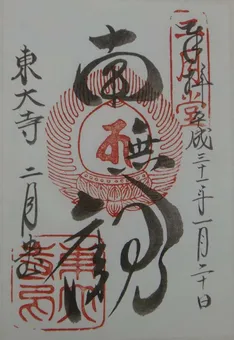 奉拝 平成三十一年一月二十日
南無観
東大寺 二月堂